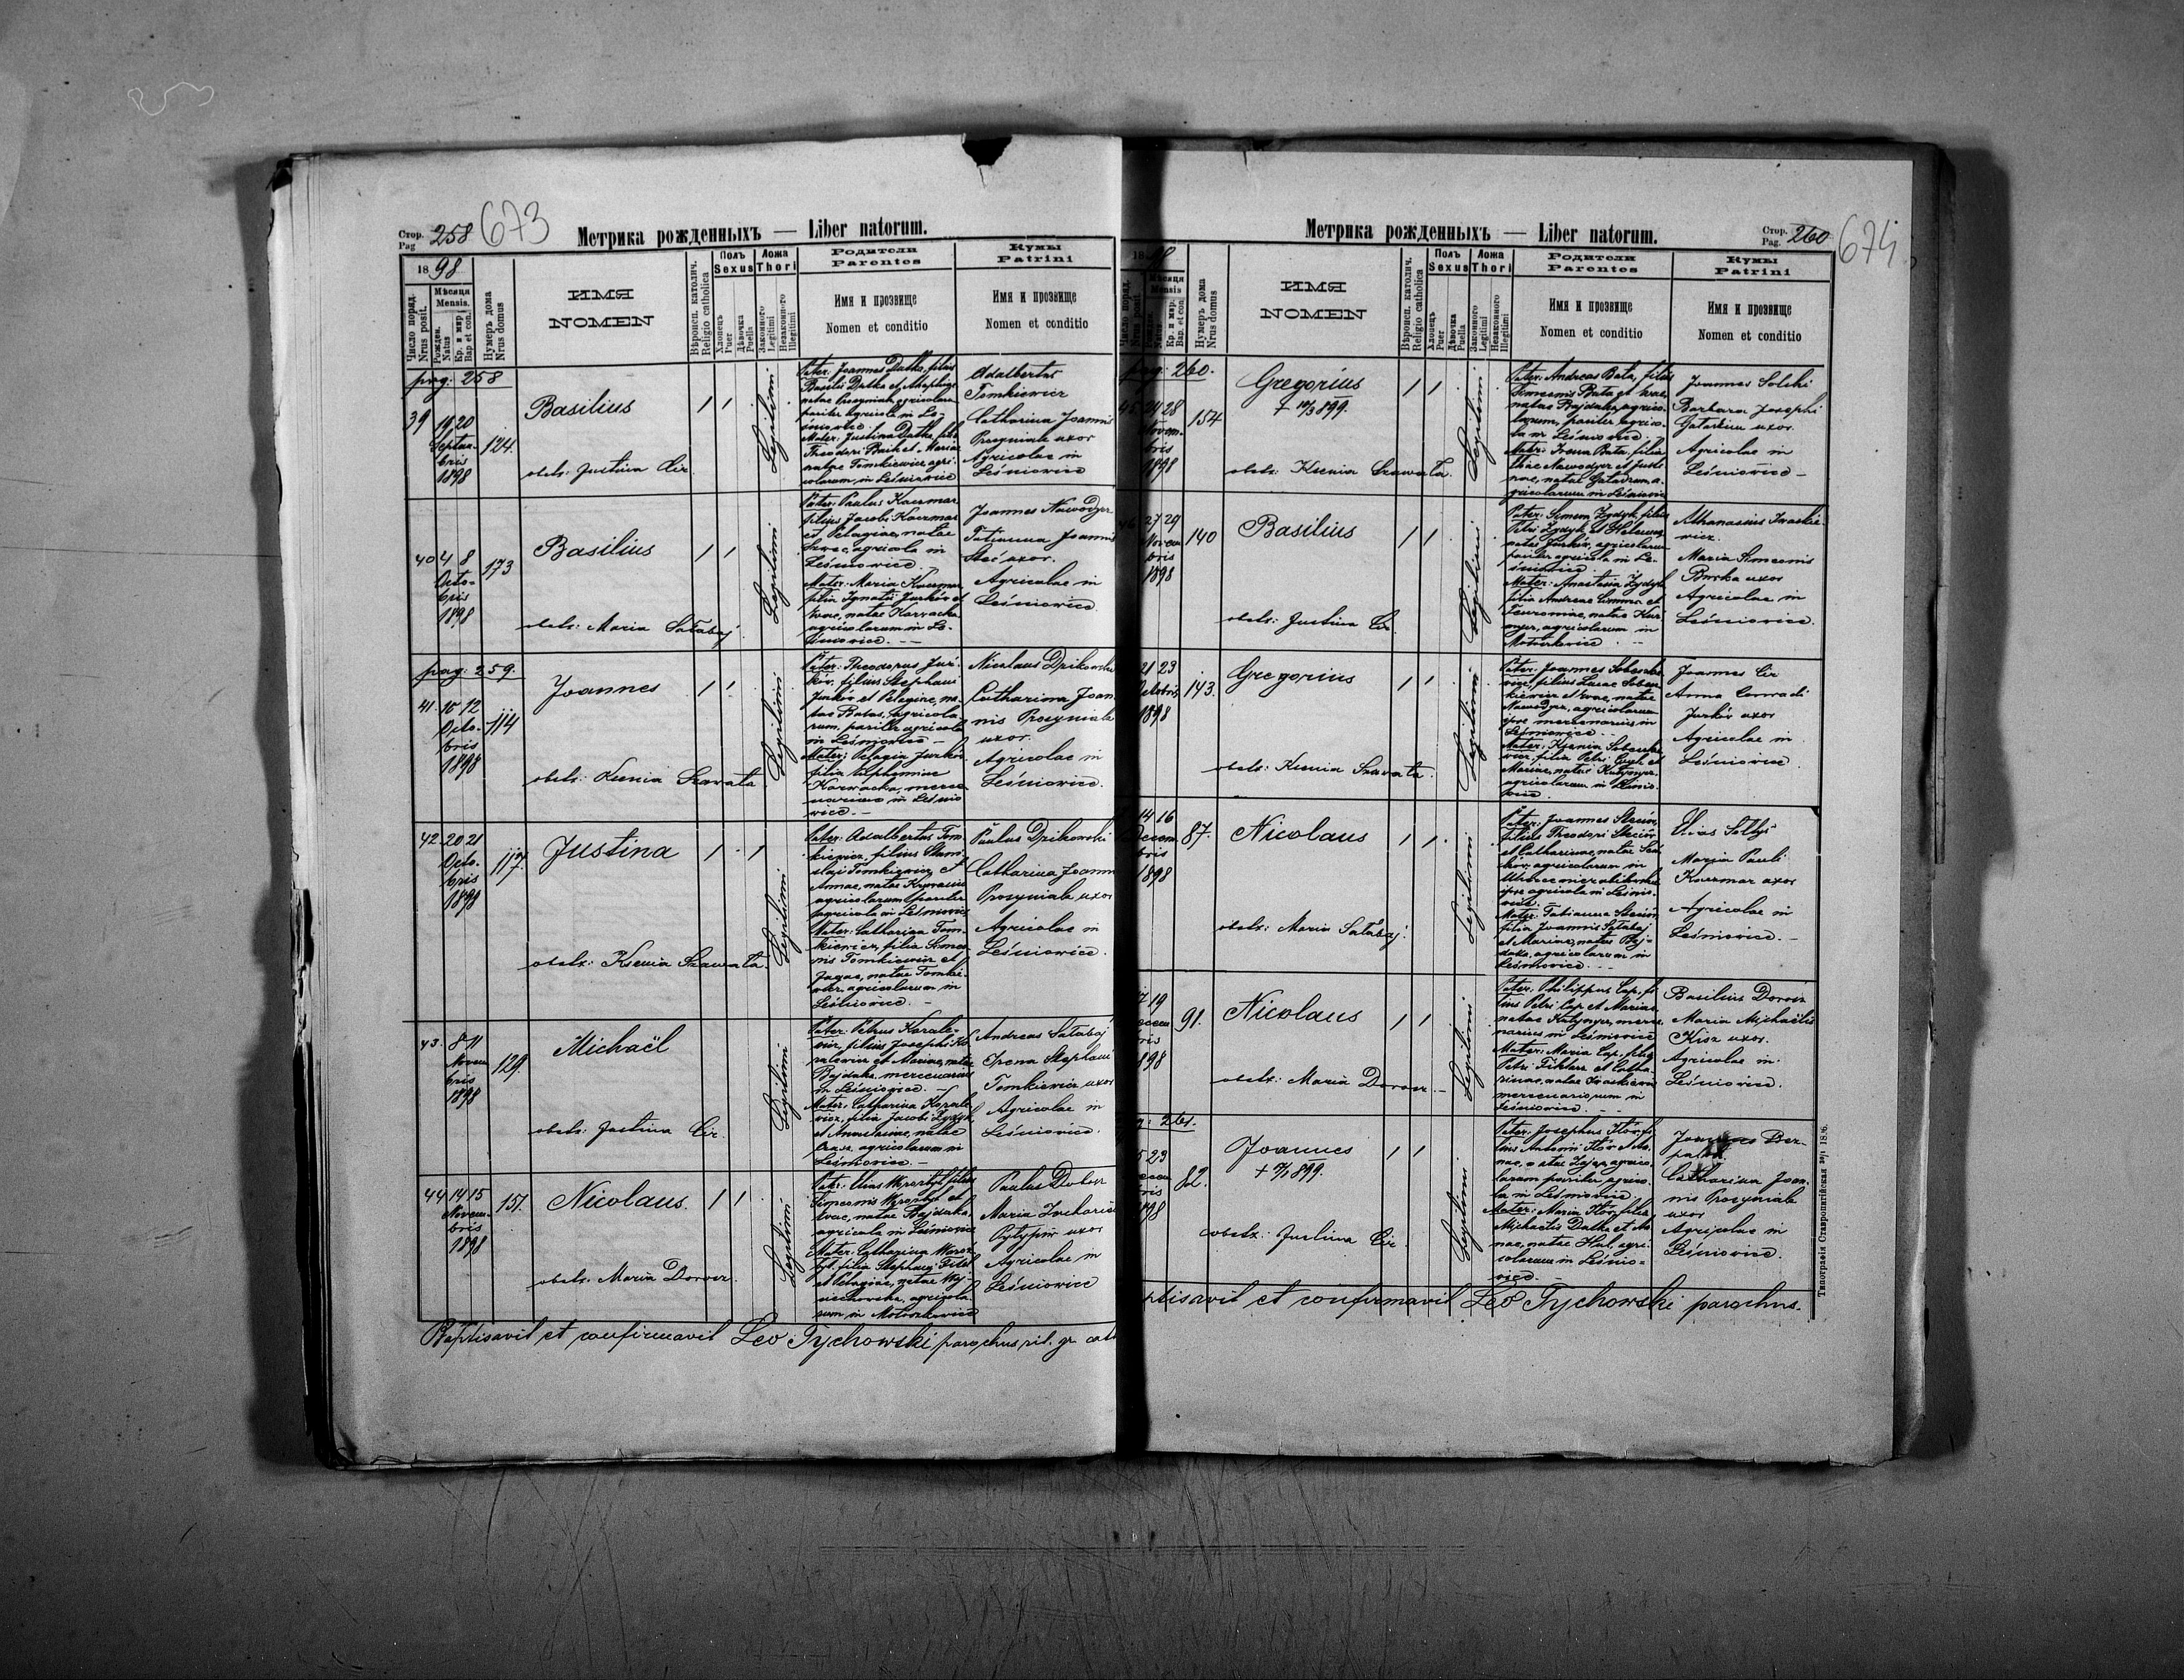 Стор.
Pag 258
673
Метрика рожденныхъ — Liber natorum.
1898
Число поряд.
Nrus posit.
Мѣсяця
Mensis.
Рожден.
Natus
Кр. и мвр.
Bap et con.
Нумеръ дома
Nrus domus
ИМЯ
NOMEN
Вѣроисп. католич.
Religio catholica
Полъ
Sexus
Хлопець
Puer
Дѣвочка
Puella
Ложа
Thori
Законного
Legitimi
Незаконного
Illegitimi
Родители
Parentes
Имя и прозвище
Nomen et conditio
Кумы
Patrini
Имя и прозвище
Nomen et conditio
pag: 258
39 19 20
Septem-
bris
1898
124.
Basilius
obstr: Justina Cir.
Legitimi
Pater: Joannes Datka, filius
Basilii Datka et
natae agricolarum
pariter agricola in Leś-
niowice.
Mater: Justina Datka, filia
Theodori et Mariae
natae Tomkiewicz, agri-
colarum in Leśniowice
Adalbertus
Tomkiewicz
Catharina Joannis
Procyniak uxor
Agricolae in
Leśniowice
40 4 8
Octo-
bris
1898
173
Basilius
obstr: Maria Sałabaj
Legitimi
Pater: Paulus Kaczmar
filius Jacobi Kaczmar
et Pelagiae, natae
Szwec, agricola in
Leśniowice.
Mater: Maria Kaczmar,
filia Ignatii Jurków et
Evae, natae Karwacka
agricolarum in Le-
śniowice. —
Joannes Nawodyr
Tatianna Joannis
Steć uxor.
Agricolae in
Leśniowice.
pag: 259.
41 10 12
Octo-
bris
1898
114
Joannes
obstr: Ksenia Szawała.
Legitimi
Pater: Theodorus Jur-
ków, filius Stephani
Jurków et Pelagiae, na-
tae Batas, agricola-
rum, pariter agricola
in Leśniowice —
Mater: Pelagia Jurków
filia Euphemiae
Karwacka, merce-
nariae in Leśnio-
wice. —
Nicolaus Dzikowski
Catharina Joan-
nis Procyniak
uxor.
Agricolae in
Leśniowice.
42. 20 21
Octo-
bris
1898
117.
Justina
obstr: Ksenia Szawała.
Legitimi
Pater: Adalbertus Tom-
kiewicz, filius Stani-
slai Tomkiewicz et
Annae, natae
agricolarum, pariter
agricola in Leśniowice
Mater: Catharina Tom-
kiewicz, filia Simeo-
nis Tomkiewicz et
natae Tomkie-
wicz, agricolarum in
Leśniowice. —
Paulus Dzikowski
Catharina Joannis
Procyniak uxor
Agricolae in
Leśniowice.
43. 8 11
Novem-
bris
1898
129.
Michaël
obstr: Justina Cir.
Legitimi
Pater: Petrus Korale-
wicz, filius Josephi Ko-
ralewicz et Mariae, natae
Bajdaka mercenarius
in Leśniowice. —
Mater: Catharina Korale-
wicz, filia Jacobi Zydyk
et Anastasiae, natae
agricolarum in
Leśniowice. —
Andreas Sałabaj
Irena Stephani
Tomkiewicz uxor
Agricolae in
Leśniowice.
44 14 15
Novem-
bris
1898
151.
Nicolaus.
obstr: Maria Dorosz.
Legitimi
Pater: Elias filius
Simeonis et
Evae, natae Bajdaka,
agricola in Leśniowice
Mater: Catharina
filia Stephani
et Pelagiae, natae Woj-
ciechowska, agricola-
rum in Mołoszkowice
Paulus
Maria Zachariae
uxor
Agricolae in
Leśniowice
Baptisavit et confirmavit Leo Tychowski parochus rit. gr. cat
Метрика рожденныхъ — Liber natorum.
Стор.
Pag. 260
674
1898
Число поряд.
Мѣсяця
Mensis
Кр. и мвр.
Bap. et con.
Нумеръ дома
Nrus domus
ИМЯ
NOMEN
Вѣроисп. католич.
Religio catholica
Полъ
Sexus
Хлопець
Puer
Дѣвочка
Puella
Ложа
Thori
Законного
Legitimi
Незаконного
Illegitimi
Родители
Parentes
Имя и прозвище
Nomen et conditio
Кумы
Patrini
Имя и прозвище
Nomen et conditio
pag: 260.
45. 24 28
Novem-
bris
1898
154
Gregorius
† 19/3 899.
obstr: Ksenia Szawała.
Legitimi
Pater: Andreas Bata, filius
Simeonis Bata et Evae,
natae Bajdaka, agrico-
larum, pariter agrico-
la in Leśniowice
Mater: Irena Bata, filia
Eliae Nawodyr et Justi-
nae, natae Gatarzum a-
gricolarum in Leśniowice
Joannes Solski
Barbara Josephi
uxor.
Agricolae in
Leśniowice —
46 27 29
Novem-
bris
1898
140
Basilius
obstr: Justina Cir
Legitimi
Pater: Simeon Zydyk, filius
Petri Zydyk et Helenae
natae Jurków, agricolarum
pariter agricola in Le-
śniowice
Mater: Anastasia Zydyk
filia Andreae et
natae
agricolarum in
Mołoszkowice —
Athanasius Iwaskie-
wicz.
Maria Simeonis
Burka uxor
Agricolae in
Leśniowice.
21 23
Octobris
1898
143.
Gregorius
obstr: Ksenia Szawała.
Legitimi
Pater: Joannes Sobeszkie-
wicz, filius Lucae Sobesz-
kiewicz et Evae, natae
Nawodyr, agricolarum
ipse mercenarius in
Leśniowice
Mater: Ksenia Sobeszkie-
wicz, filia Petri et
Mariae, natae
agricolarum in Leśnio-
wice
Joannes Cir
Anna Conradi
Jurków uxor
Agricolae in
Leśniowice
14 16
Decem-
bris
1898
87.
Nicolaus
obstr: Maria Sałabaj.
Legitimi
Pater: Joannes Steciów,
filius Theodori Steciów
et Catharinae, natae
agricolarum in
ipse agricola in Leśnio-
wice. —
Mater: Tatianna Steciów
filia Joannis Sałabaj
et Mariae, natae Baj-
daka, agricolarum in
Leśniowice. —
Elias Sołtys
Maria Pauli
Kaczmar uxor
Agricolae in
Leśniowice. —
17 19
Decem-
bris
1898
91.
Nicolaus
obstr: Maria Dorosz —
Legitimi
Pater: Philippus Cap, fi-
lius Petri Cap et Mariae,
natae merce-
narius in Leśniowice
Mater: Maria Cap, filia
Petri et Catha-
rinae, natae Iwaskiewicz
mercenariorum in
Leśniowice. —
Basilius Dorosz
Maria Michaëlis
Kisz uxor.
Agricolae in
Leśniowice.
: 261.
23
bris
82.
Joannes
† 899.
obstr.: Justina Cir
Legitimi
Pater: Josephus fi-
lius Antonii et An-
nae, natae agrico-
larum pariter agrico-
la in Leśniowice
Mater: Maria filia
Michaëlis Datka et An-
nae, natae Hul, agri-
colarum in Leśnio-
wice. —
Joannes
Catharina Joan-
nis Procyniak
uxor
Agricolae in
Leśniowice.
ptisavit et confirmavit Leo Tychowski parochus.
Типографія Ставропигійская